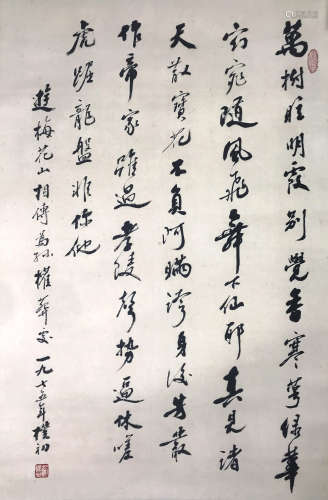 萬樹眩明霞別覺香寒萼綠華
窈窕隨風飛舞下仙耶真見諸
天散寶花不負阿瞞誇身後芳叢
作帝家雖過孝陵聲勢逼休嗟
虎踞龍盤非你他
遊梅花山相傳為孫權葬處一九七五年樸初